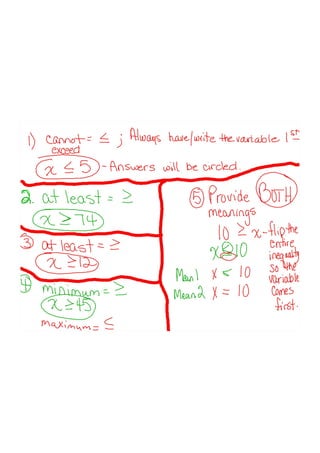 1) cannot = ≤ ; Always have/write the variable 1st
exceed
x ≤ 5 - Answers will be circled
2. at least = ≥
x ≥ 74
3 at least = ≥
x ≥ 12
4 minimum = ≥
x ≥ 45
maximum = ≤
5 Provide BOTH
meanings
10 ≥ x - flip the
entire
x ≤ 10 inequality
so the
Mean 1 x < 10 variable
Mean 2 x = 10 comes
first.